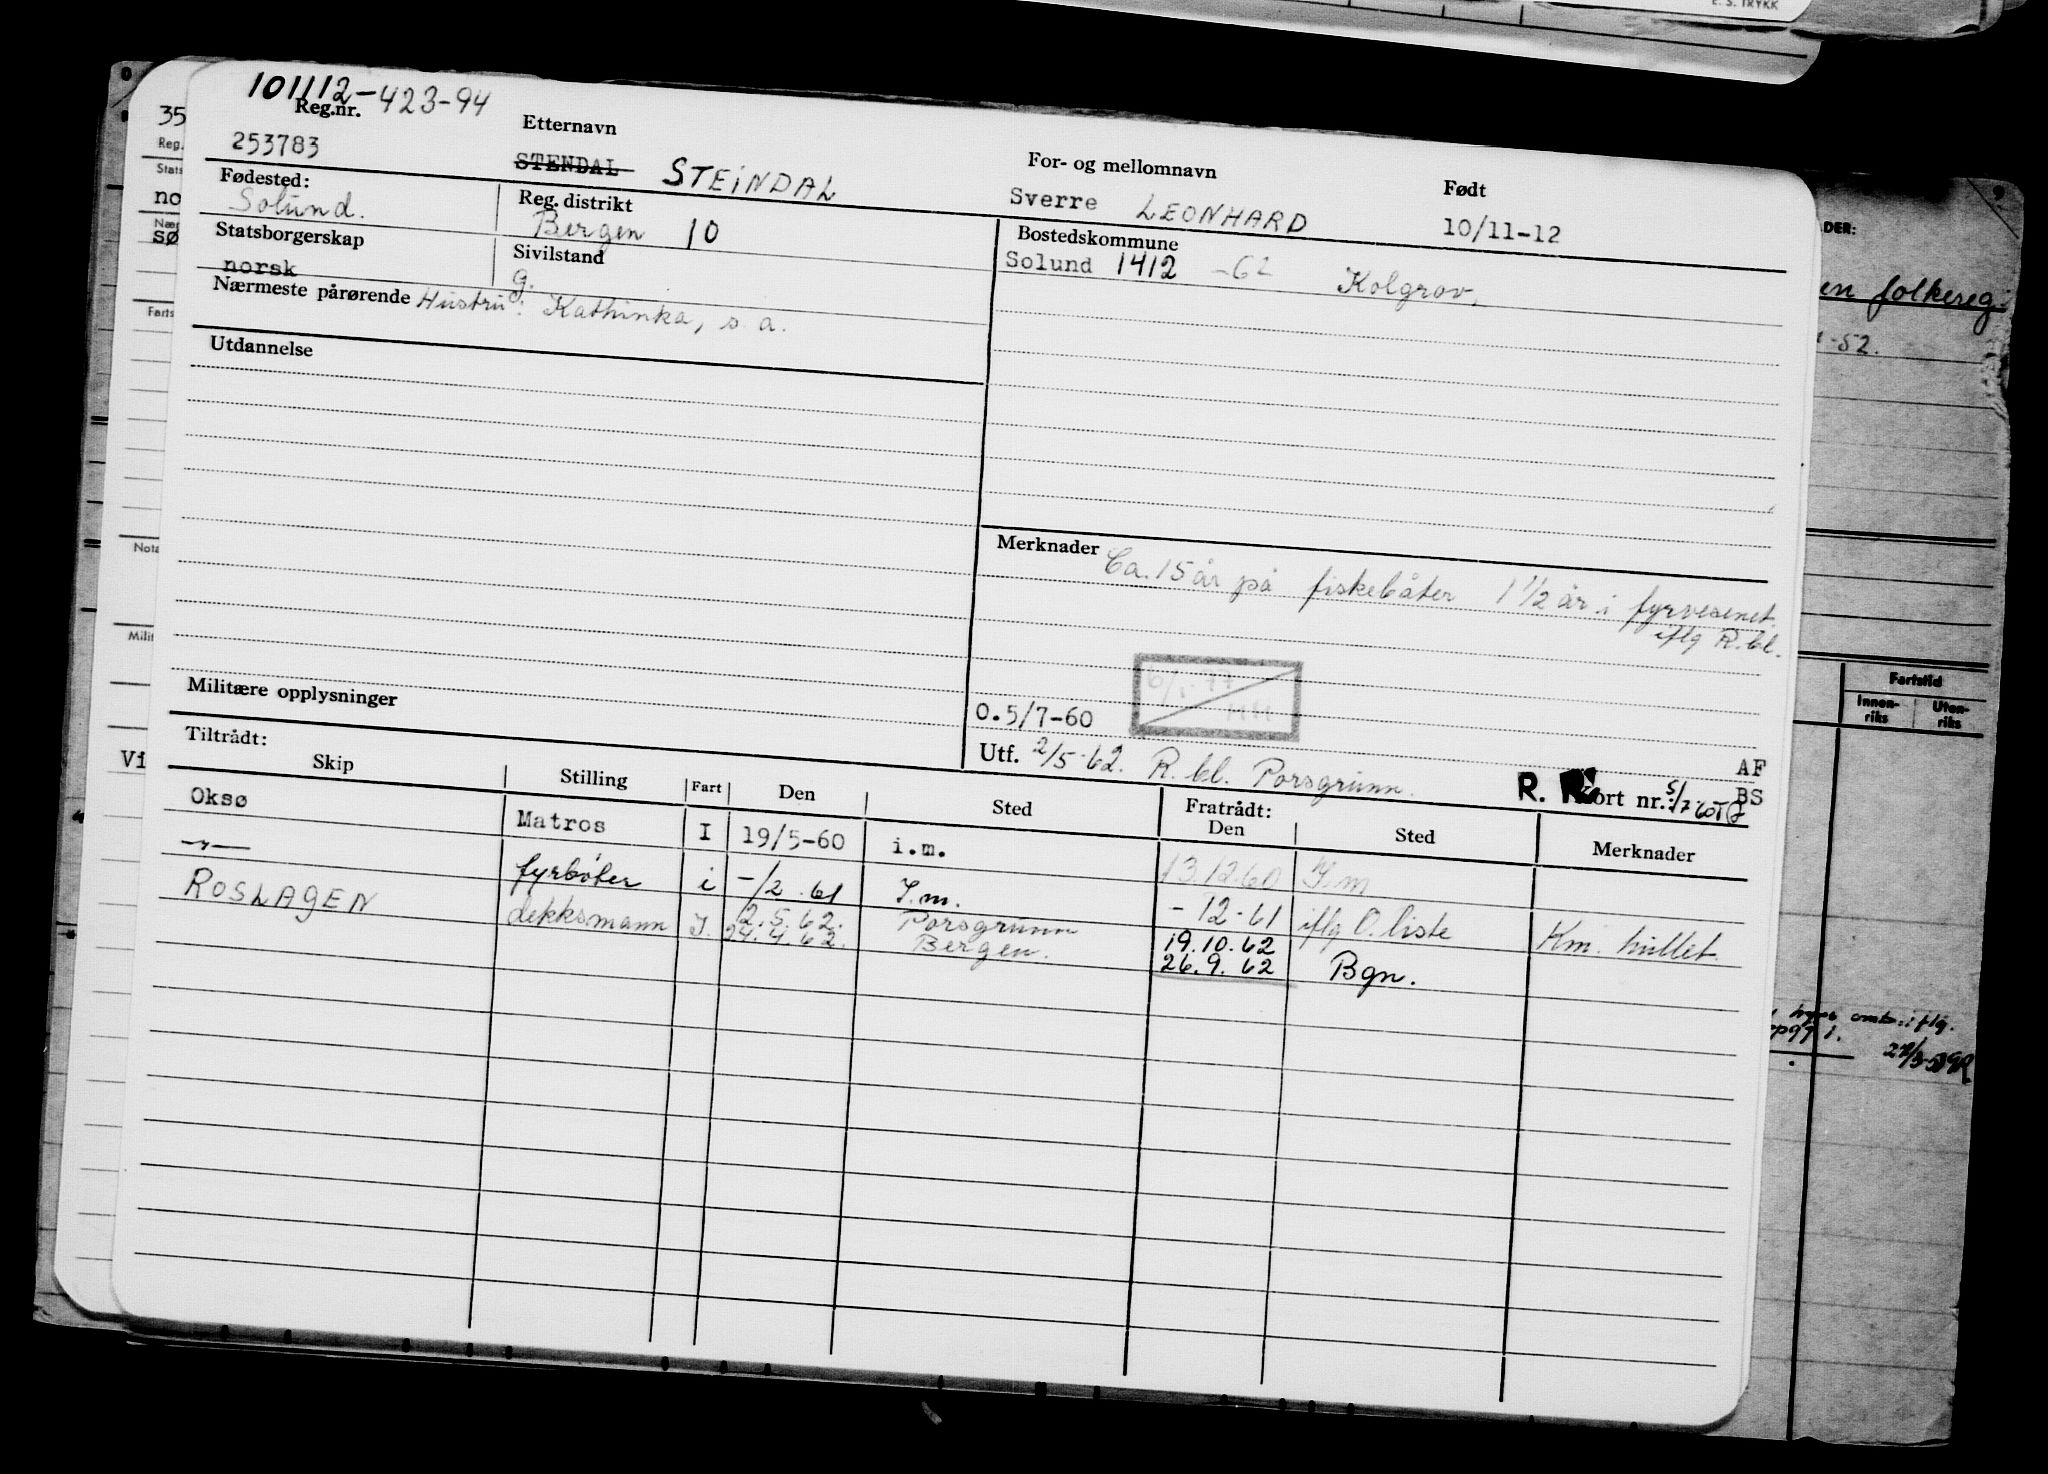 E. S. TRYKK
101112-423-94
Reg.nr.
253783
Etternavn
STENDAL STEINDAL
For- og mellomnavn
Sverre LEONHARD
Født
10/11-12
Fødested:
Solund.
Reg. distrikt
Bergen 10
Bostedskommune
Solund 1412 -62 Kolgrov,
Statsborgerskap
norsk
Sivilstand
g.
Nærmeste pårørende Hustru: Kathinka, s.a.
Utdannelse
Merknader Ca. 15 år på fiskebåter 1 1/2 år i fyrvesenet.
iflg R.bl.
Militære opplysninger
O.5/7-60
Utf. 2/5-62. R. bl. Porsgrunn.
AF
BS
R. kort nr.:
Tiltrådt:
Skip Stilling Fart Den Sted Fratrådt: Den Sted Merknader
Oksø Matros I 19/5-60 i.m. 13.12.60 I.m
-"- fyrbøter i -/2.61 I.m. -12-61 iflg O. liste
ROSLAGEN dekksmann I. 2.5.62. Porsgrunn 19.10.62 Km. hullet.
24.4.62. Bergen. 26.9.62 Bgn.
35
Reg.
Stats
no
Nær
sø
Farts
Nota
Milit
Vi
DER:
en folkereg.
-52.
Fartstid
Innen-
riks
Uten-
riks